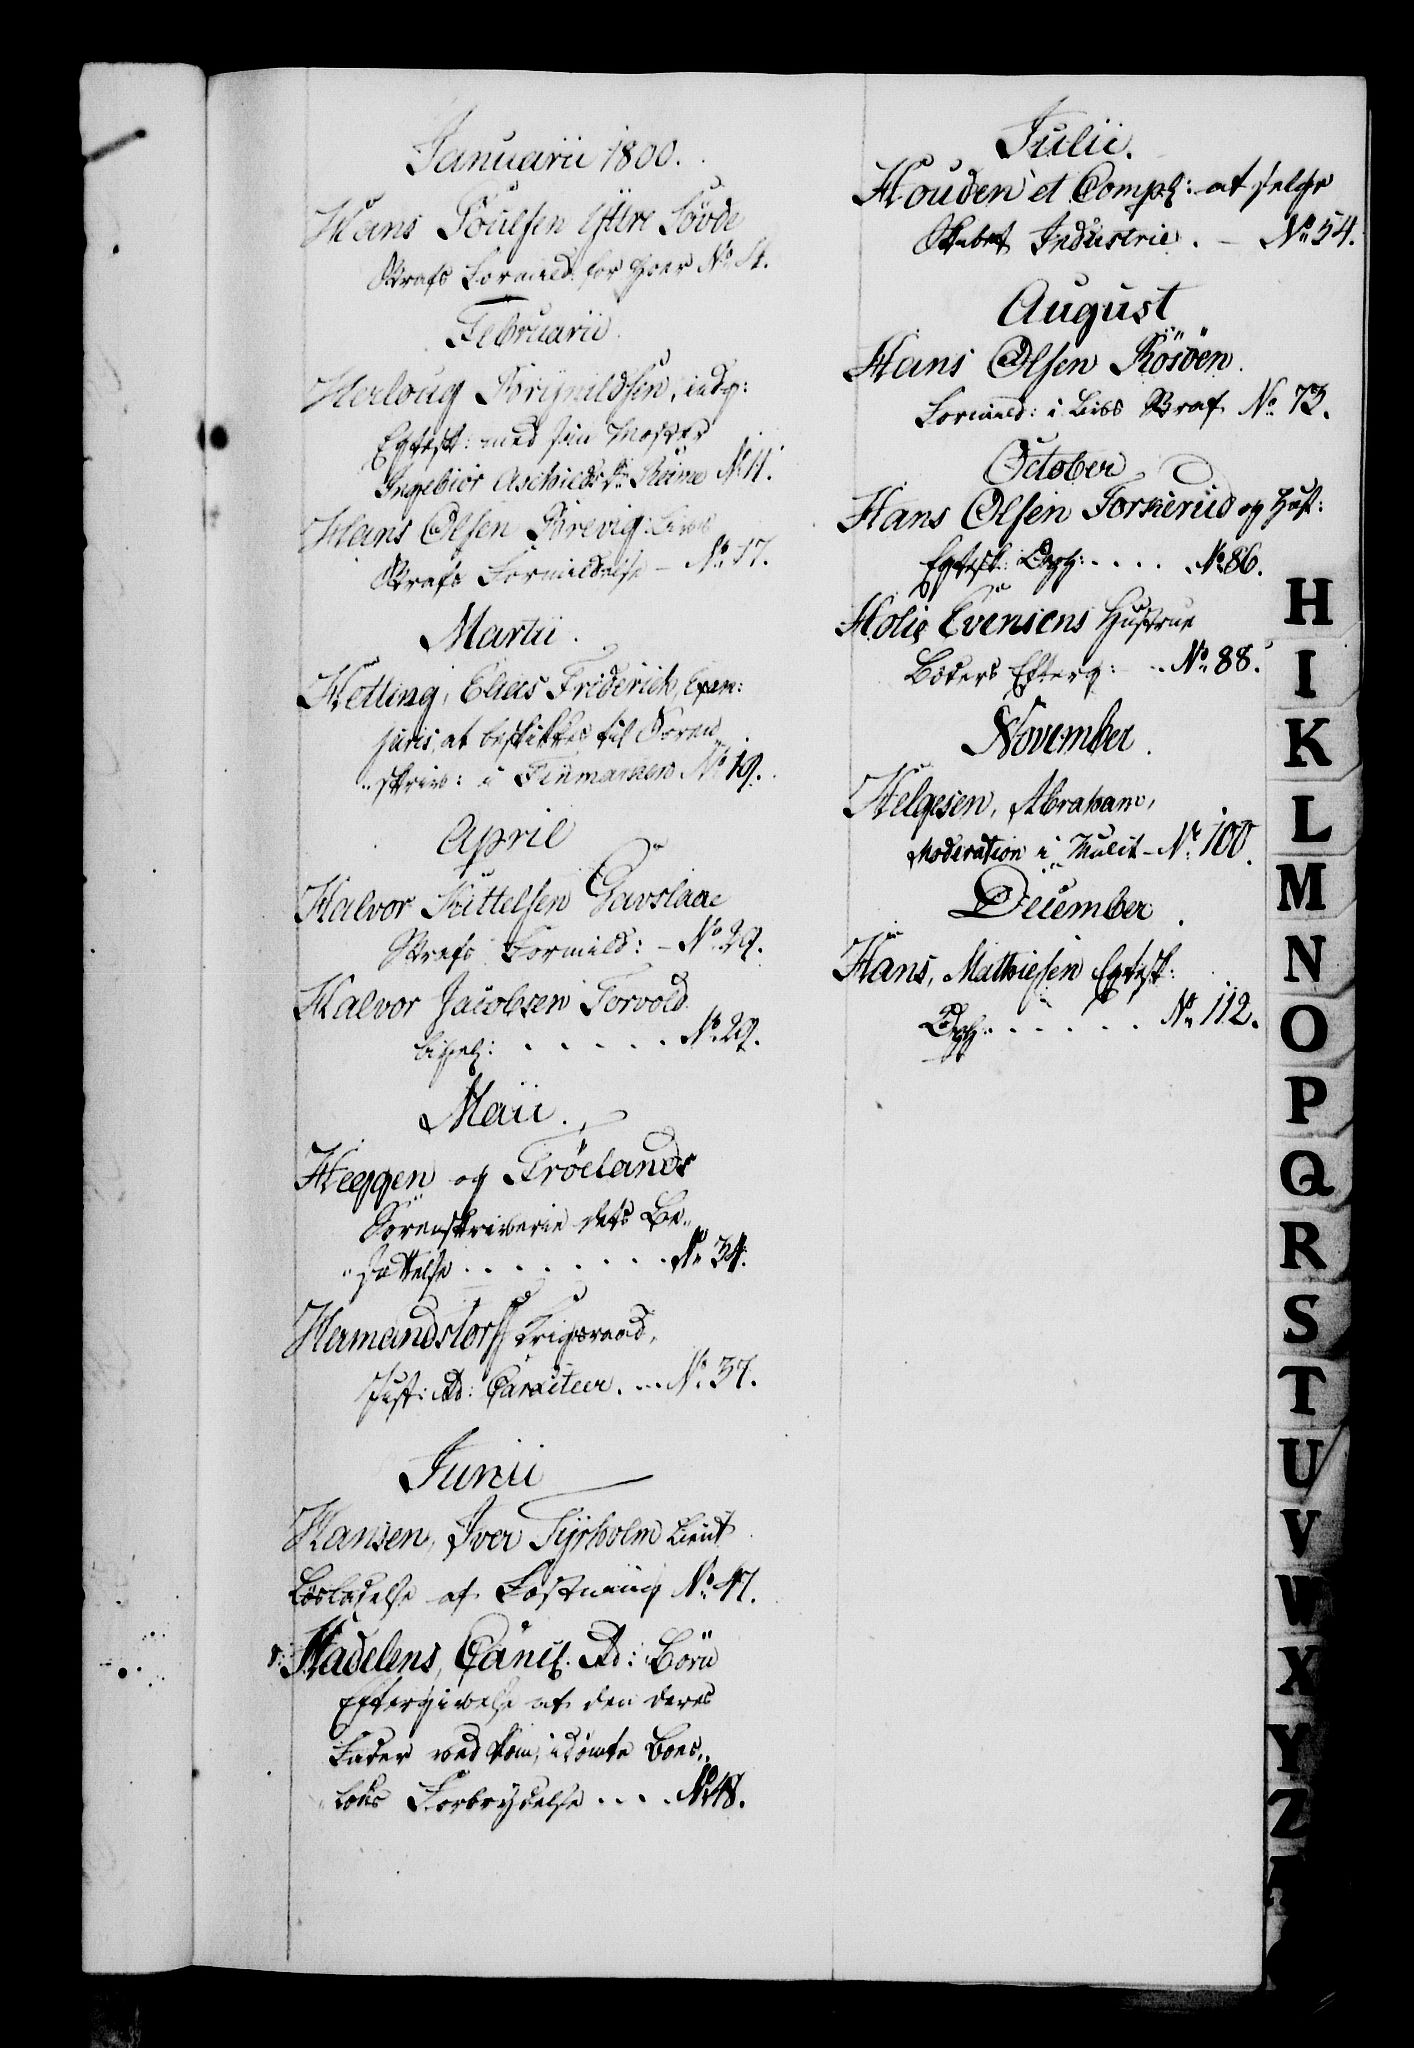 Januarii 1800.
Hans Poulsen Ytre Søvde
Strafs Formild: for Hoer No 4.
Februarii
Herloug Brynildsen, indg:
Egtesk: med sin Moster
Ingebior Aschilds Dr. Reime No 11.
Hans Olsen Brevig: Livs
Strafs Formildelse – No 17.
Martii.
Hetting, Claus Friderich, Exam:
juris, at beskikkes til Soren
skriv: i Finmarken No 19.
April
Halvor Kittelsen Gavslaae
Strafs Formild: – No 29.
Halvor Jacobsen Torvold
ligel: . . . . . No 29.
Maii.
Heggen og Frölands
Sorenskriverie dets Be„
„sættelse . . . . . . . No 34.
Hermandstorff Krigsraad,
Just: Rd: Caracteer. ... No 37.
Junii
Hansen, Iver Tyrholm Lieut
Løsladelse af Fæstning No 47.
Hadelens, Cancl. Rd: Börn
Eftergivelse af den deres
Fader ved Dom, idømte Boes„
„lods Forbrydelse . . . . No 48.
Julii.
Houden et Comph: at selge
Skabet Industrie. – No 54.
August
Hans Olsen Rösöen
Formild: i Livs Straf No 73.
October
Hans Olsen Torkerud og Hust:
Egtesk: Oph: . . . . No 86.
Holie Evensens Hustrue
Böders Efterg: . . No 88.
November
Helgesen, Abraham,
Moderation i Mulct – No 100.
December
Hans, Mathiesen Egtesk:
Oph: . . . . . . No 112.
H
I
K
L
M
N
O
P
Q
R
S
T
U
V
W
X
Y
Z